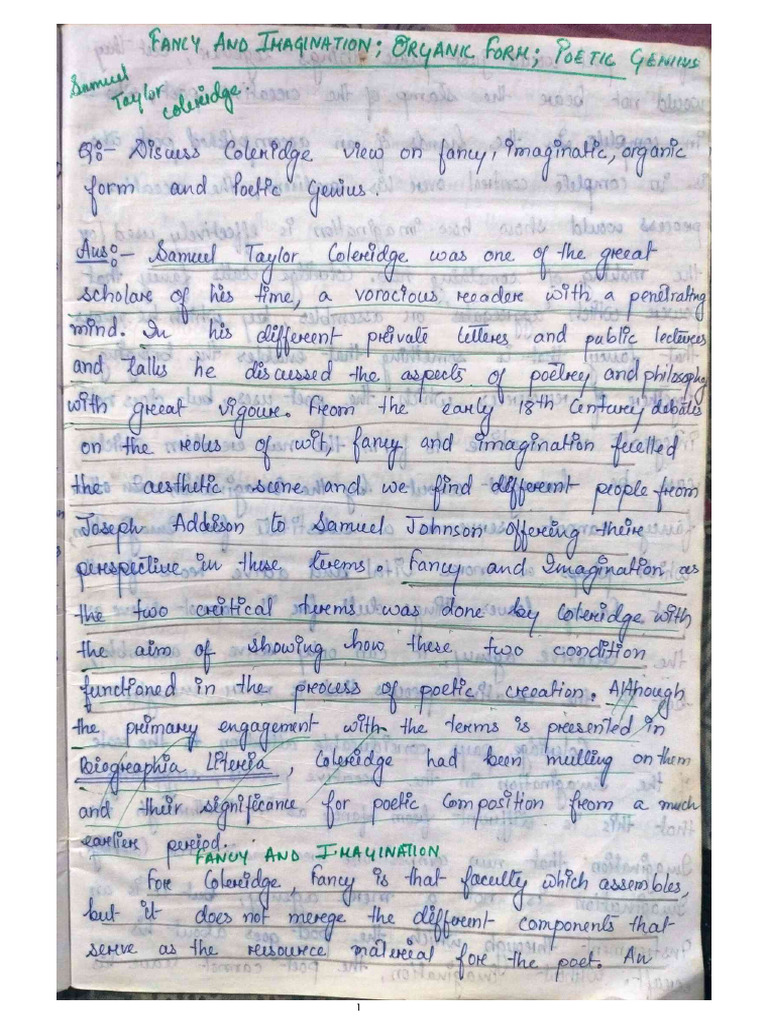 FANCY AND IMAGINATION; ORGANIC FORM; POETIC GENIUS
Samuel
Taylor
Coleridge.
Q:- Discuss Coleridge view on fancy, imaginatic, organic
form and Poetic Genius.
Ans:- Samuel Taylor Coleridge was one of the great
scholar of his time, a voracious reader with a penetrating
mind. In his different private letters and public lectures
and talks he discussed the aspects of poetry and philosophy
with great vigour. From the early 18th Century debates
on the roles of wit, fancy and imagination fuelled
the aesthetic scene and we find different people from
Joseph Addison to Samuel Johnson offering their
perspective in these terms. Fancy and Imagination as
the two critical terms was done by Coleridge with
the aim of showing how these two condition
functioned in the process of poetic creation. Although
the primary engagement with the terms is presented in
Biographia Literia, Coleridge had been mulling on them
and their significance for poetic composition from a much
earlier period.
FANCY AND IMAGINATION
For Coleridge, Fancy is that faculty which assembles,
but it does not merge the different components that
serve as the resource material for the poet. An
1